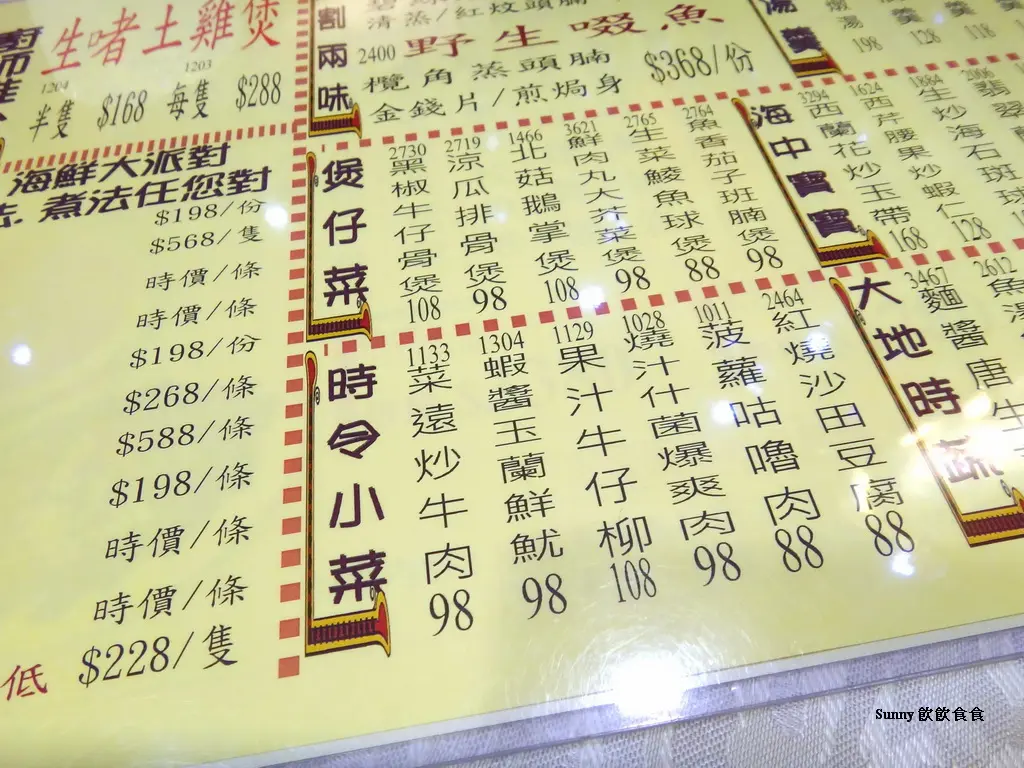 生啫土雞煲
1204
1203
半隻 $168 每隻 $288
海鮮大派對
煮法任您對
$198/份
$568/隻
時價/條
時價/條
$198/份
$268/條
$588/條
$198/條
時價/條
時價/條
低 $228/隻
割兩味
清蒸/紅炆頭腩
2400 野生啜魚
欖角蒸頭腩
金錢片/煎焗身
$368/份
湯羹
湯 198
羹 128
羹 118
煲仔菜
2730 黑椒牛仔骨煲 108
2719 涼瓜排骨煲 98
1466 北菇鵝掌煲 108
3621 鮮肉丸大芥菜煲 98
2765 生菜鯪魚球煲 88
2764 魚香茄子班腩煲 98
海中寶寶
3294 西蘭花炒玉帶 168
1624 西芹腰果炒蝦仁 128
1884 生炒海石斑球
時令小菜
1133 菜遠炒牛肉 98
1304 蝦醬玉蘭鮮魷 98
1129 果汁牛仔柳 108
1028 燒汁什菌爆爽肉 98
1011 菠蘿咕嚕肉 88
2464 紅燒沙田豆腐 88
大地時蔬
3467 麵醬唐生
2612 魚湯
Sunny 飲飲食食